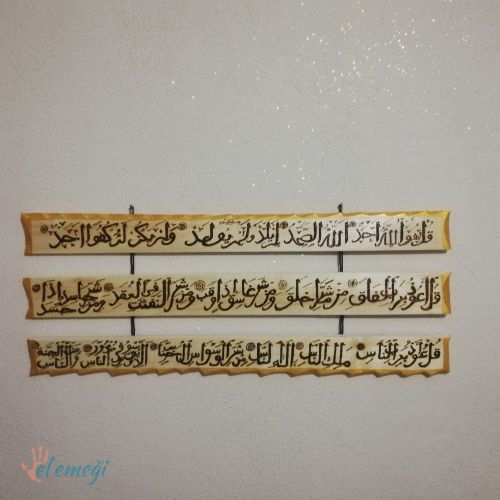 قل هو الله احد الله الصمد لم يلد ولم يولد ولم يكن له كفوا احد
قل اعوذ برب الفلق من شر ما خلق ومن شر غاسق اذا وقب ومن شر النفثت في العقد ومن شر حاسد اذا حسد
قل اعوذ برب الناس ملك الناس اله الناس من شر الوسواس الخناس الذى يوسوس فى صدور الناس من الجنة والناس
el emeği